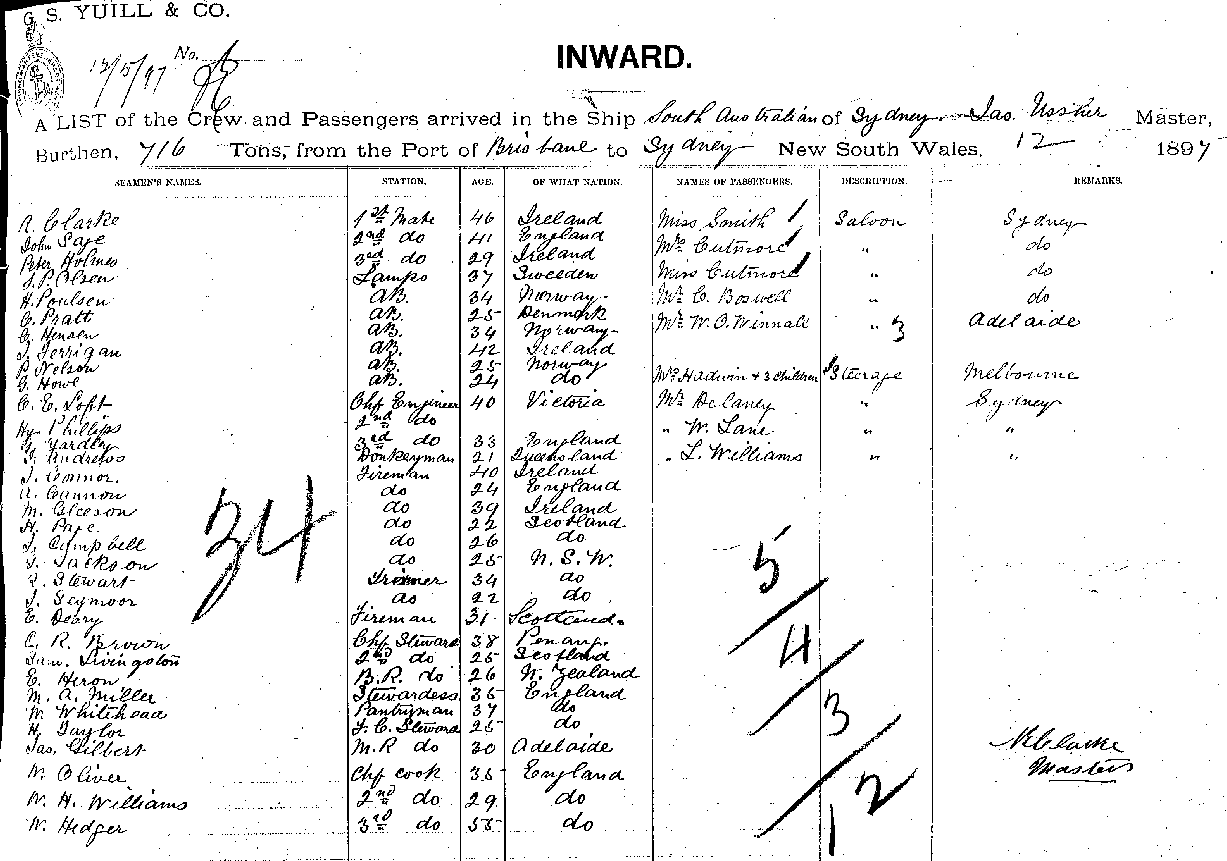 G. S. YUILL & CO.
12/5/97 No.
INWARD.
A LIST of the Crew and Passengers arrived in the Ship South Australian of Sydney Jas. Ussher Master,
Burthen, 716 Tons, from the Port of Brisbane to Sydney New South Wales, 12 1897
SEAMEN'S NAMES. STATION. AGE. OF WHAT NATION. NAMES OF PASSENGERS. DESCRIPTION. REMARKS.
R. Clarke 1st Mate 46 Ireland Miss Smith Saloon Sydney
John Sage 2nd do 41 England Mrs Cutmore " do
Peter Holmes 3rd do 29 Ireland Miss Cutmore " do
J. P. Olsen Lamps 37 Sweeden
H. Poulsen AB. 34 Norway. Mr C. Boswell " do
C. Pratt AB. 25 Denmark Mr W. O. Winnall " 3 Adelaide
G. Hensen AB. 34 Norway
J. Jerrigan AB. 42 Ireland
P. Nelson AB. 25 Norway Mrs Hadwin + 3 children Steerage Melbourne
G. Howe AB. 24 do
C. E. Loft Chf Engineer 40 Victoria Mr Delaney " Sydney
Hy. Phillips 2nd do " W. Lane " "
Yardley 3rd do 33 England
J. Andrews Donkeyman 21 Queensland " L. Williams " "
J. Connor. Fireman 40 Ireland
A. Cannon do 24 England
M. Gleeson do 39 Ireland
H. Page do 22 Scotland
J. Campbell do 26 do
J. Jackson do 25 N. S. W.
R. Stewart Trimmer 34 do
J. Seymoor do 22 do
E. Deary Fireman 31 Scotland.
C. R. Brown Chf Steward 38 Penang.
Jas. Livingston 2nd do 25 Scotland
E. Heron B. R. do 26 N. Zealand
M. A. Miller Stewardess 35 England
W. Whitehead Pantryman 37 do
H. Taylor F. C. Steward 25 do
Jas. Gilbert M. R do 30 Adelaide
W. Oliver Chf cook 35 England
W. H. Williams 2nd do 29 do
W. Hedger 3rd do 55 do
34
5
4
3
12
R Clarke
Master